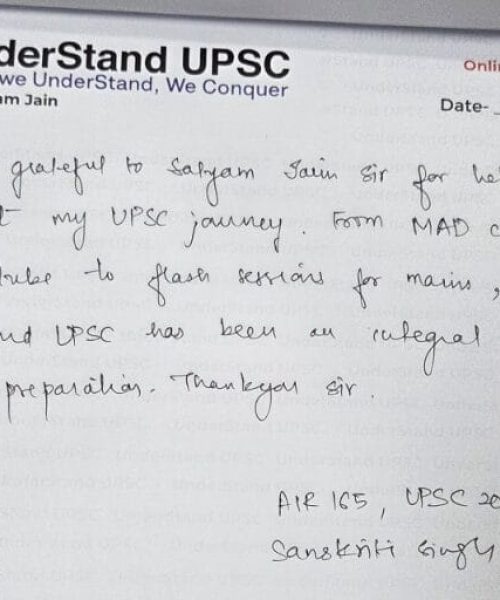 derStand UPSC
we UnderStand, We Conquer
am Jain
Onli
Date-
grateful to Satyam Jain Sir for he
t my UPSC journey. From MAD c
tube to flash sessions for mains,
nd UPSC has been an integral
preparation. Thankyou sir.
AIR 165, UPSC 20
Sanskriti Singh